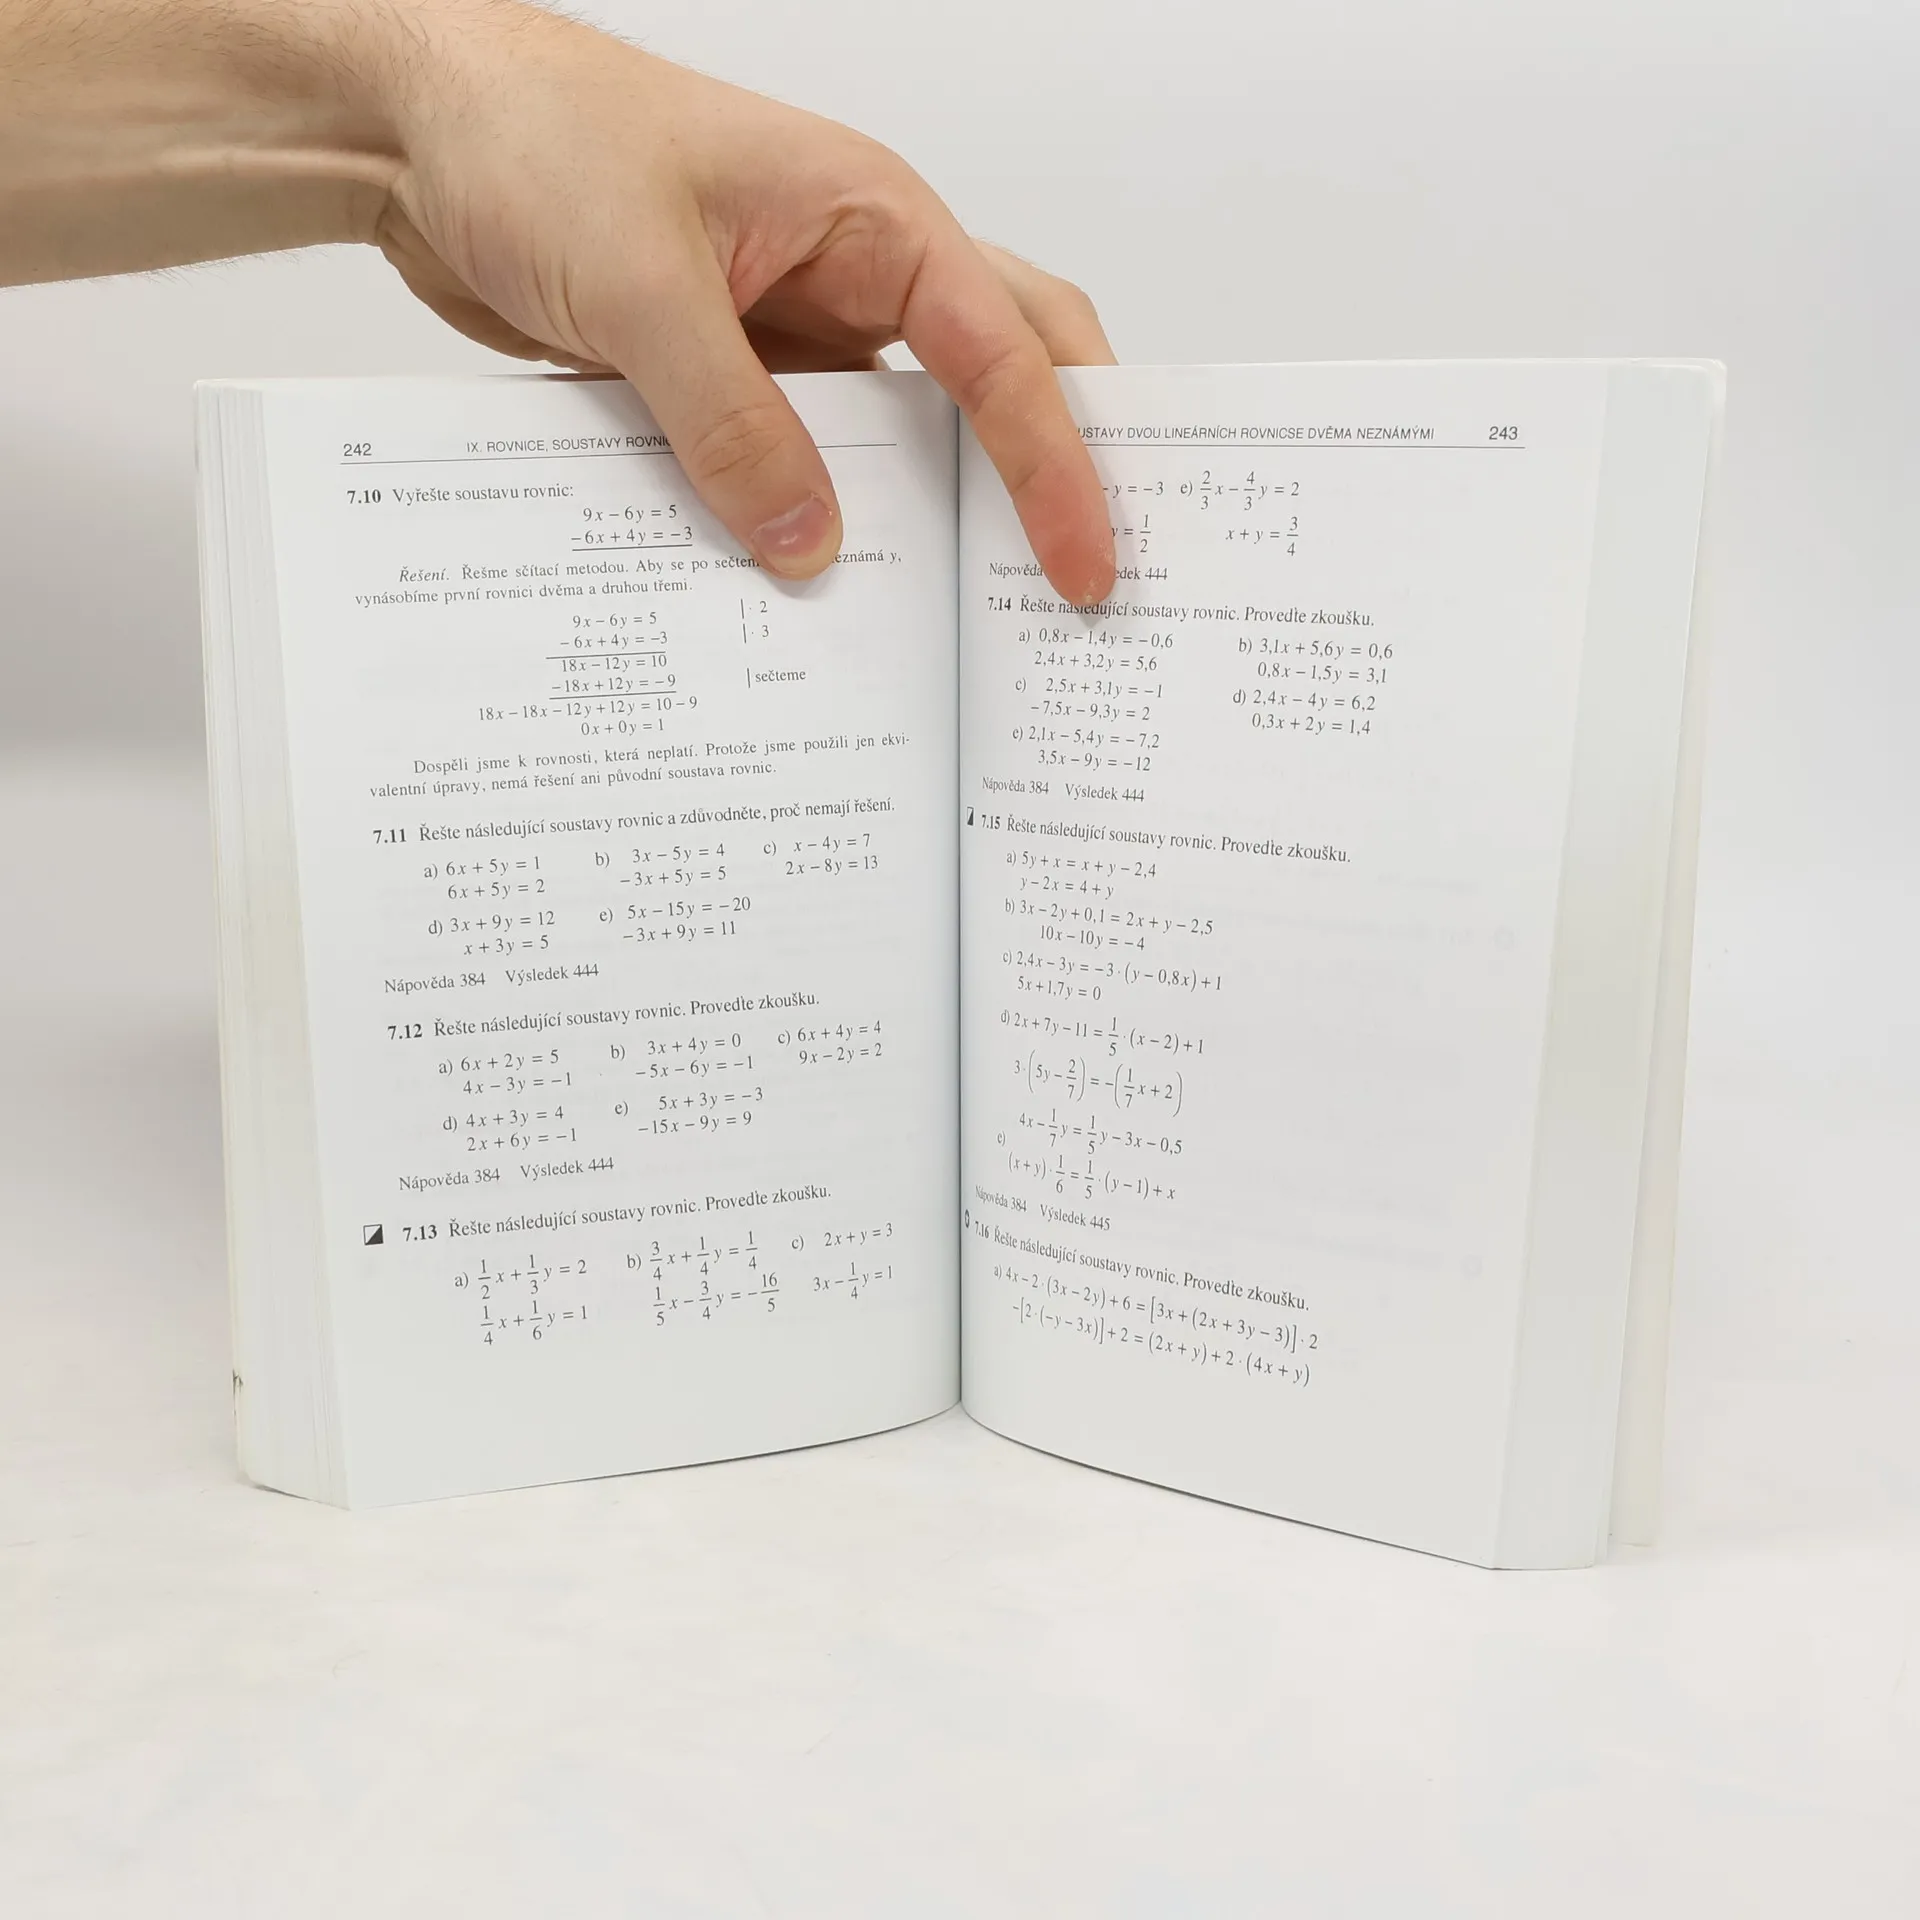 242 IX. ROVNICE, SOUSTAVY
7.10 Vyřešte soustavu rovnic:
9x – 6y = 5
–6x + 4y = –3
Řešení. Řešme sčítací metodou. Aby se po
vynásobíme první rovnici dvěma a druhou třemi. y,
9x – 6y = 5 | · 2
–6x + 4y = –3 | · 3
18x – 12y = 10
–18x + 12y = –9 | sečteme
18x – 18x – 12y + 12y = 10 – 9
0x + 0y = 1
Dospěli jsme k rovnosti, která neplatí. Protože jsme použili jen ekvi-
valentní úpravy, nemá řešení ani původní soustava rovnic.
7.11 Řešte následující soustavy rovnic a zdůvodněte, proč nemají řešení.
a) 6x + 5y = 1 b) 3x – 5y = 4 c) x – 4y = 7
6x + 5y = 2 –3x + 5y = 5 2x – 8y = 13
d) 3x + 9y = 12 e) 5x – 15y = –20
x + 3y = 5 –3x + 9y = 11
Nápověda 384 Výsledek 444
7.12 Řešte následující soustavy rovnic. Proveďte zkoušku.
a) 6x + 2y = 5 b) 3x + 4y = 0 c) 6x + 4y = 4
4x – 3y = –1 –5x – 6y = –1 9x – 2y = 2
d) 4x + 3y = 4 e) 5x + 3y = –3
2x + 6y = –1 –15x – 9y = 9
Nápověda 384 Výsledek 444
7.13 Řešte následující soustavy rovnic. Proveďte zkoušku.
a) 1/2 x + 1/3 y = 2 b) 3/4 x + 1/4 y = 1/4 c) 2x + y = 3
1/4 x + 1/6 y = 1 1/5 x – 3/4 y = –16/5 3x – 1/4 y = 1
DVOU LINEÁRNÍCH ROVNICSE DVĚMA NEZNÁMÝMI 243
y = –3 e) 2/3 x – 4/3 y = 2
= 1/2 x + y = 3/4
Nápověda 444
7.14 Řešte následující soustavy rovnic. Proveďte zkoušku.
a) 0,8x – 1,4y = –0,6 b) 3,1x + 5,6y = 0,6
2,4x + 3,2y = 5,6 0,8x – 1,5y = 3,1
c) 2,5x + 3,1y = –1 d) 2,4x – 4y = 6,2
–7,5x – 9,3y = 2 0,3x + 2y = 1,4
e) 2,1x – 5,4y = –7,2
3,5x – 9y = –12
Nápověda 384 Výsledek 444
7.15 Řešte následující soustavy rovnic. Proveďte zkoušku.
a) 5y + x = x + y – 2,4
y – 2x = 4 + y
b) 3x – 2y + 0,1 = 2x + y – 2,5
10x – 10y = –4
c) 2,4x – 3y = –3 · (y – 0,8x) + 1
5x + 1,7y = 0
d) 2x + 7y – 11 = 1/5 · (x – 2) + 1
3 · (5y – 2/7) = –(1/7 x + 2)
e) 4x – 1/7 y = 1/5 y – 3x – 0,5
(x + y) · 1/6 = 1/5 · (y – 1) + x
Nápověda 384 Výsledek 445
7.16 Řešte následující soustavy rovnic. Proveďte zkoušku.
a) 4x – 2 · (3x – 2y) + 6 = [3x + (2x + 3y – 3)] · 2
–[2 · (–y – 3x)] + 2 = (2x + y) + 2 · (4x + y)